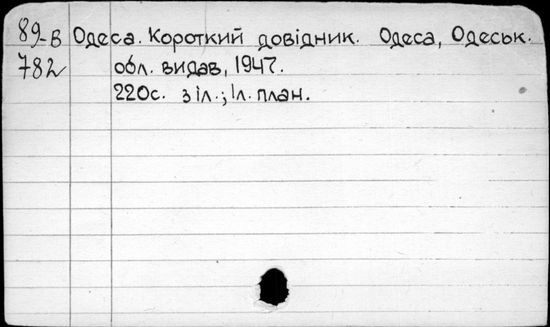 89-в Одеса. Короткий довідник. Одеса, Одеськ.
782 обл. видав, 1947.
220с. з іл.; 1л. план.